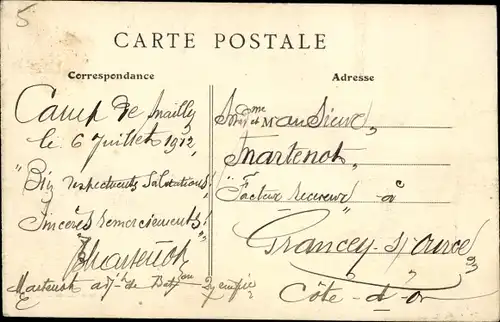 5
CARTE POSTALE
Correspondance
Adresse
Camp de Mailly
le 6 Juillet 1912,
"Biz respectueuses salutations!
Sincères remerciements!"
Martenot
Martenot adj. de Bat.
Mme et Mr
Martenot,
Facteur Receveur
Grancey-s/-Ource
Côte-d'Or